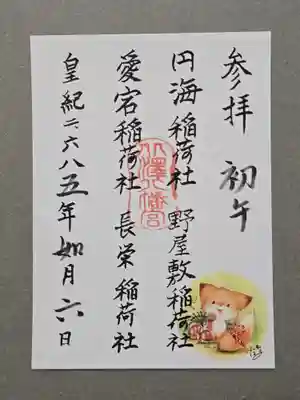 参拝 初午
円海稲荷社 野屋敷稲荷社
愛宕稲荷社 長栄稲荷社
皇紀二六八五年如月六日